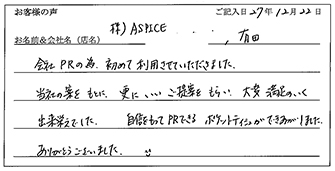 お客様の声 ご記入日27年12月22日
お名前&会社名(店名) 株)ASPICE 有田
会社PRの為、初めて利用させていただきました。
当社の案をもとに、更にいいご提案をもらい、大変満足のいく
出来栄えでした。 自信をもってPRできるポケットティッシュができあがりました。
ありがとうございました。